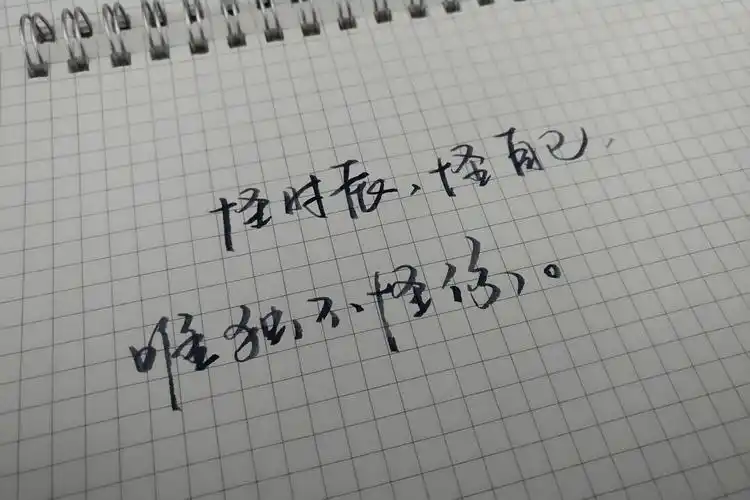 怪时辰，怪自己，
唯独不怪你。